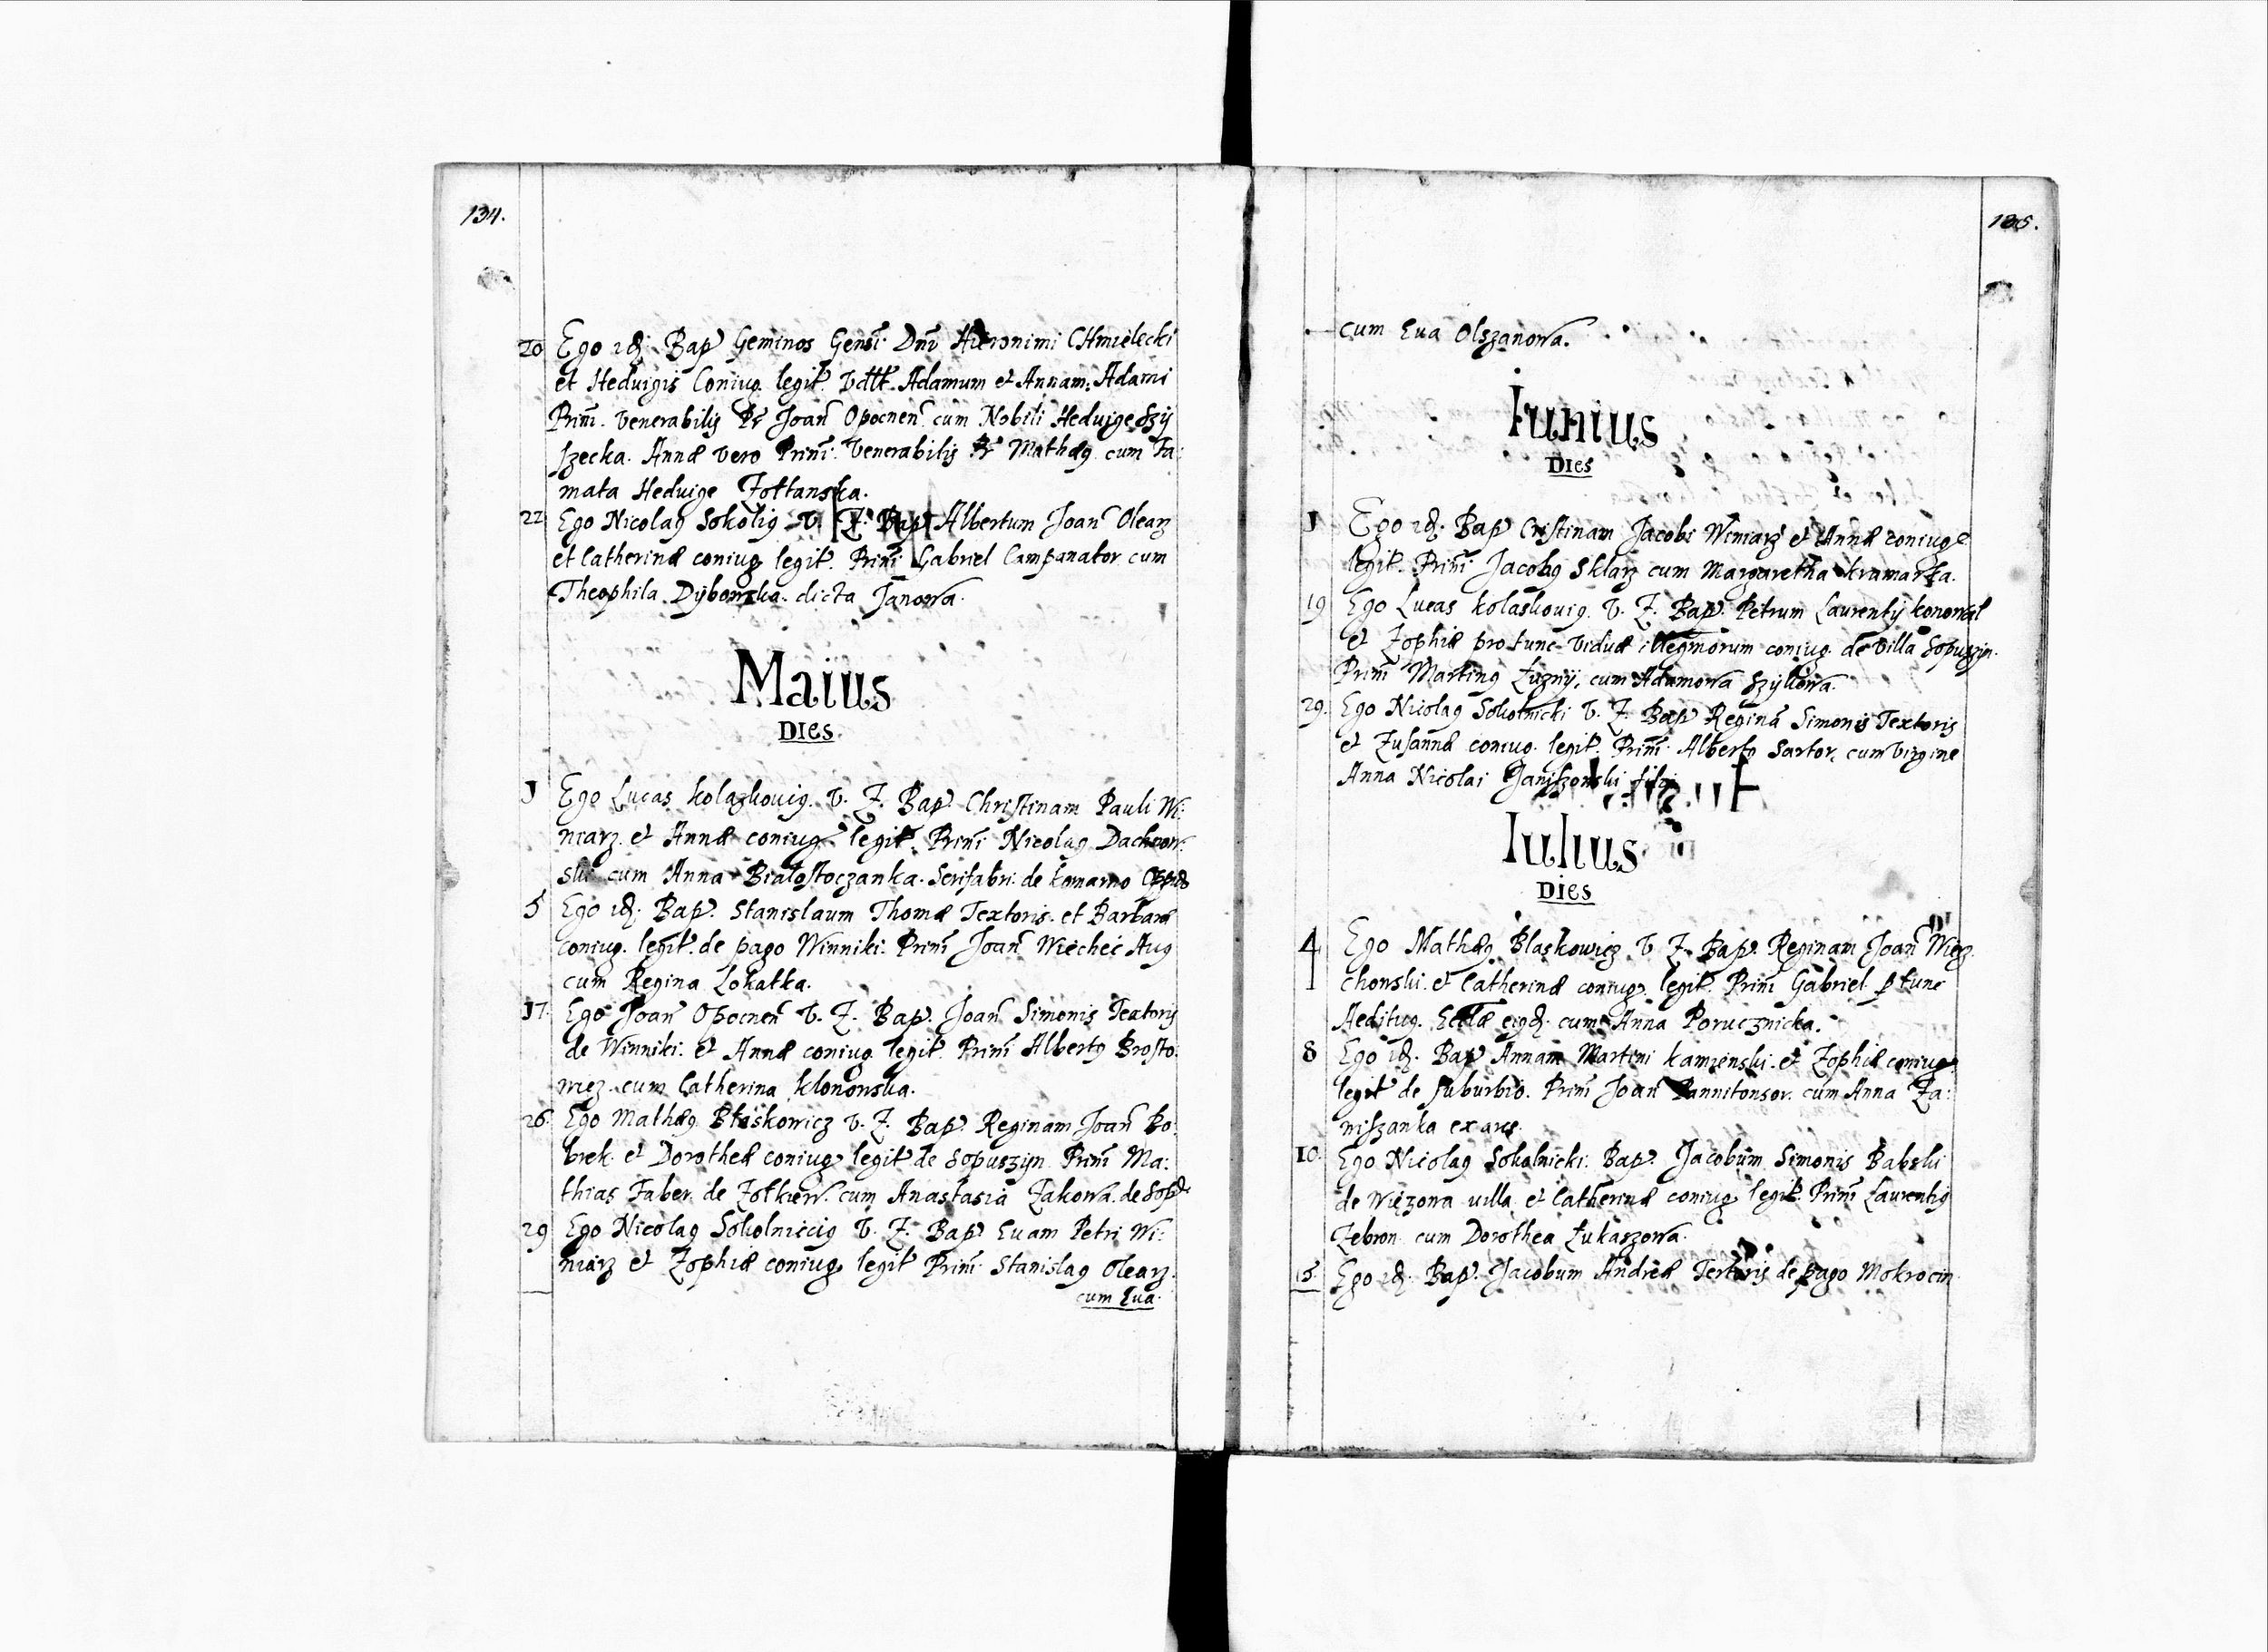 134.
20 Ego id. Bap. Geminos Gensi. Dni Hieronimi CHmielecki
et Hedvigis Coniug. legit. Vdtt. Adamum et Annam. Adami
Primi. Venerabilis Pr Joan Opocnen. cum Nobili Hedvige Szy
szecka. Annæ vero Primi. Venerabilis Pr Mathæg cum Fa:
mata Hedvige Zołtanska.
22 Ego Nicolag Sokolig V. Z. Bap. Albertum Joan Olearz
et Catherinæ coniug legit. Primi Gabriel Campanator cum
Theophila Dybowska. dicta Janowa.
Maius
DIES.
J Ego Lucas kolazkovig. V. Z. Bap. Christinam Pauli Wi:
niarz. et Annæ coniug. legit. Primi Nicolag Dachnow:
ski cum Anna Białostoczanka. Serifabri. de komarno
5 Ego id. Bap. Stanislaum Thomæ Textoris. et Barbaræ
coniug. legit. de pago Winniki. Primi Joan Wiecheć Aug
cum Regina Lokatka.
J7. Ego Joan Opocnen V. Z. Bap. Joan Simonis Textoris
de Winniki. et Annæ coniug legit. Primi Albertg Brosto:
wicz. cum Catherina klonowska.
26. Ego Mathæg Błaskowicz V. Z. Bap. Reginam Joan Bo:
brek. et Dorotheæ coniug legit de Sopuszyn Primi Ma:
thias Faber de Zołkiew. cum Anastasia Zakowa. de Sop.
29 Ego Nicolag Sokolniccig V. Z. Bap. Evam Petri Wi:
niarz et Zophiæ coniug legit Primi Stanislag Olearz.
cum Eva.
135.
cum Eva Olszanowa.
Junius
DIES
J Ego id. Bap Cristinam Jacobi Winiarz et Annæ coniug
legit. Primi Jacobg Sklarz cum Margaretha kramarka.
19 Ego Lucas kolaskovig. V. Z. Bap. Petrum Laurentij konował
et Zophiæ pro tunc viduæ, coniug. de villa Sopuszyn.
Primi Marting Łuzny, cum Adamowa Szylowa.
29. Ego Nicolag Sokolnicki V. Z. Bap Reginã Simonis Textoris
et Zusannæ coniug. legit. Primi Albertg Sartor, cum Virgine
Anna Nicolai Janiszowski filia
Iulius
DIES
4 Ego Mathæg Blaskowicz V. Z. Bap. Reginam Joan Wierz
chowski. et Catherinæ coniug. legit. Primi Gabriel p tunc
Aeditug. Ecclæ eigd. cum Anna Porucznicka.
8 Ego id. Bap Annam Martini kamienski. et Zophiæ coniug
legit de suburbio. Primi Joan Pannitonsor. cum Anna Za:
niszanka ex
10. Ego Nicolag Sokolnicki. Bap. Jacobum Simonis Babski
de Wiezona villa et Catherinæ coniug legit. Primi Laurentig
Zebron cum Dorothea Łukaszowa.
15. Ego id. Bap. Jacobum Andreæ Textoris de pago Mokrocin